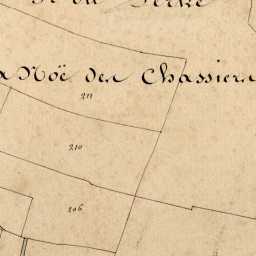 a Noë des Chassiers
211
210
206